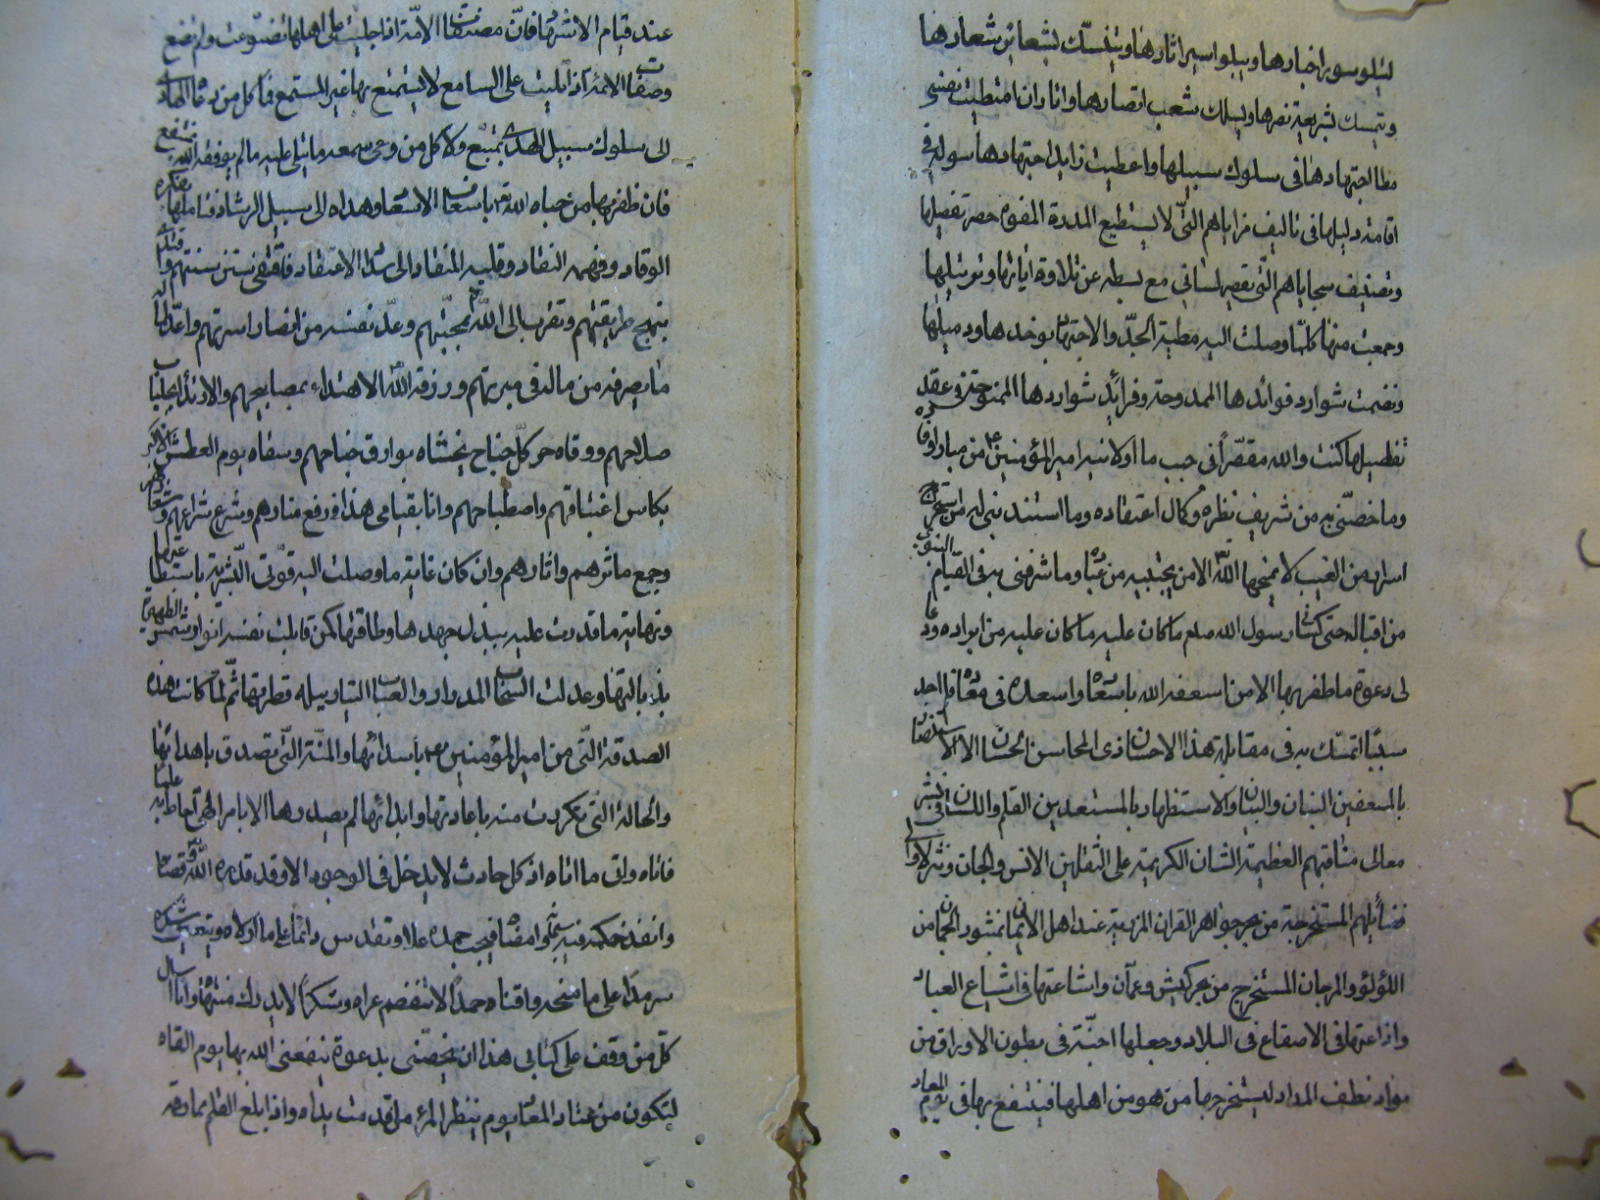 ليتلو سور اخبارها ويبلو اسير اثارها ويتنسك بشعائر شعارها
ويتمسك بشريعة نصرها ويسلك شعب انصارها واثار ان امتطيت نفسي
مطا اجتهادها في سلوك سبيلها واعطيت زايد اجتهادها سوله في
اقامة دليلها في تاليف مزاياهم التي لا يستطيع المدرة المفوه حصر تفصيلها
وتصنيف سجاياهم التي تقصر لساني مع بسطه عن تلاوة اياتها وترتيلها
وجمعت منها كلما وصلت اليه مطية الجد والاجتهاد بوخدها وذميلها
ونضمت شوارد فوائدها الممدوحة وفرائد شواردها الممنوحة في عقد
تفصيلها كنت والله مقصرا في جنب ما اولانيه امير المؤمنين من مباره
وما خصني به من شريف نظره وكمال اعتقاده وما استندني له من استخراج
اسراره من الغيب لا يمنحها الله الا من يجتبيه من عباده وما شرفني به في القيام
من اقباله حتى كشار رسول الله صلعم ما كان عليه ما كان عليه من ايراده
لى دعوة ما ظفر بها الا من اسعفه الله باسعاده واسعده في معاده فما اجد
سببا اتمسك به في مقابلة هذا الاحسان ذي المحاسن الحسان الا الاستنصار
بالمسعفين البنان والبيان والاستظهار بالمستعدين القلم واللسان في نشر
معالى مناقبهم العظيمة الشان الكريمة على الثقلين الانس والجان ونثر لاالى
فضائلهم المستخرجة من بحر جواهر القران المزرية عند اهل الايمان بمنثور الجمان من
اللؤلؤ والمرجان المستخرج من بحر كيش وعمان واشاعتها في اشياع العباد
واذاعتها في الاصقاع في البلاد وجعلها اجنة في بطون الاوراق من
مواد نطف المداد ليستخرجها من هو من اهلها فينتفع بها في يوم المعاد
عند قيام الاشهاد فان مصنفات الامة اذا جليت على اهلها تضوعت ولم تضع
وصفات الائمة اذا تليت على السامع لا يستمتع بها غير المستمع فما كل من دعاه الهادى
لى سلوك سبيل الهدى بمتبع ولا كل من وعى سمعه ما يتلى عليه مالم يوفقه الله بمنتفع
فان ظفر بها من حباه الله تعالى باسعاف الاسعاد وهداه الى سبيل الرشاد فتاملها بفكره
الوقاد وفهمه النقاد وقلبه المنقاد الى سداد الاعتقاد فاقتفى سنن سنتهم واقتدى
بنهج طريقتهم وتقرب الى الله بمحبتهم وعد نفسه من انصار اسرتهم واعد لها
ما يصرفه من ماله في مبرتهم ورزقه الله الاهتداء بمصابيحهم والارتداء بجلباب
صلاحهم ووقاه حر كل جناح يخشاه بوارق جناحهم وسقاه يوم العطش الاكبر
بكاس اغتباقهم واصطباحهم وانا بقيامى هذا في رفع منارهم وشرع شرايعهم
وجمع ماثرهم واثارهم وان كان غاية ما وصلت اليه قوتي البشرية باستطاعتها
ونهاية ما قدرت عليه ببذل جهدها وطاقتها لكمن قابلت نفسه انوار شمس الظهيرة
بذبالتها وعدلت السحاب المدرار والعباب التيار بيله قطرتها ثم لما كانت هذه
الصدقة التي من امير المؤمنين باسدائها والمنة التي تصدق باهدائها
والحالة التي تكررت منه باعادتها وابدائها لم يصدرها الا بامر الهي احاط به علما
فاتاه والى ما اتاه اذ كل حادث لا يدخل في الوجود الا وقد قدره الله وقضاه
وانفذ حكمه فيه وامضاه فيجب حمده علا وتقدس دائما على ما اولاه ويتعين شكره
سرمدا على ما منحه واقناه حمدا لا تنفصم عراه وشكرا لا يدرك منتهاه وانا اسال
كل من وقف على كتابي هذا ان يخصني بدعوة ينفعني الله بها يوم القاه
لتكون من عتاد المعاد يوم ينظر المرء ما قدمت يداه واذا بلغ القلم بما وقه